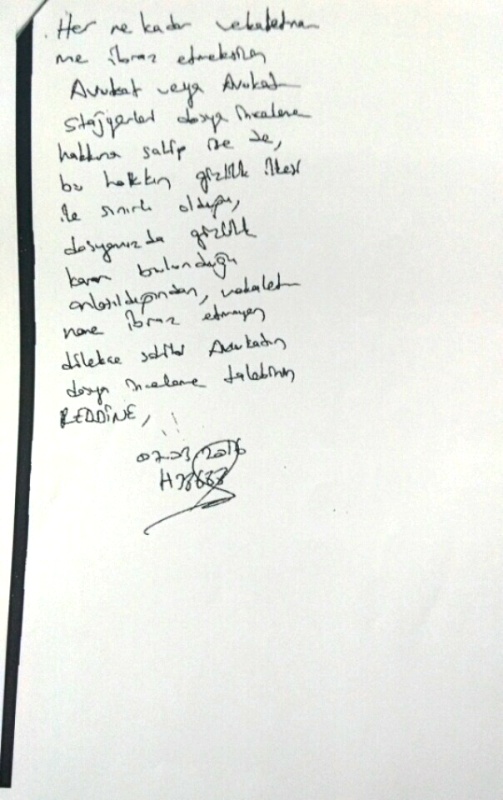 Her ne kadar vekaletna
me ibraz etmeksizin
Avukat veya Avukat
Stajyerleri dosya inceleme
hakkına sahip ise de,
bu hakkın gizlilik ilkesi
ile sınırlı olduğu,
dosyamızda gizlilik
kararı bulunduğu
anlaşıldığından, vekalet
name ibraz etmeyen
dilekçe sahibi Avukatın
dosya inceleme talebinin
REDDİNE,
07.03.2016